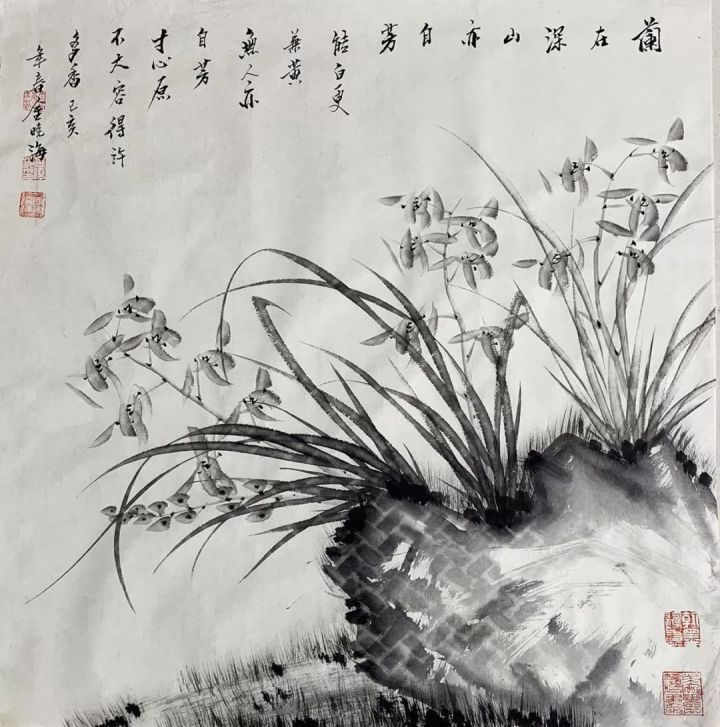 蘭在深山亦自芳
皓白更
兼黄
無人亦
自芳
寸心原
不大容得許
多香己亥
年春金曉海